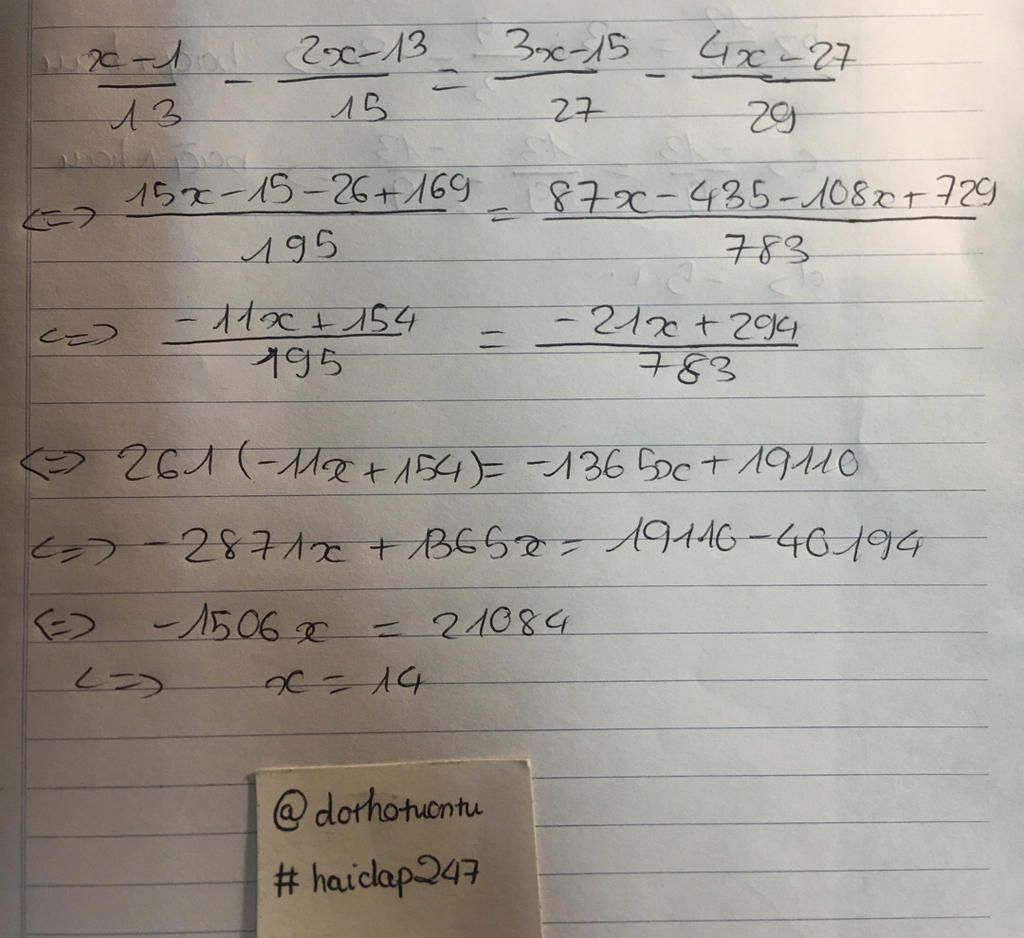 x-1/13 - 2x-13/15 = 3x-15/27 - 4x-27/29
<=> 15x-15-26+169/195 = 87x-435-108x+729/783
<=> -11x+154/195 = -21x+294/783
<=> 261(-11x+154)= -1365x+19110
<=> -2871x+1365x= 19110-40194
<=> -1506x = 21084
<=> x=14
@dothotuontu
#haiclap247